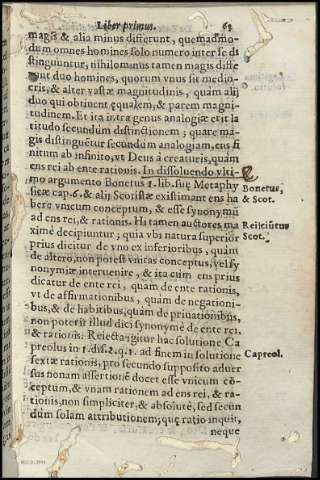 Liber primus. 63
magis & alia minus differunt, quemadmo-
dum omnes homines solo numero inter se di
stinguũtur, nihilominus tamen magis diffe
runt duo homines, quorum vnus sit medio-
cris, & alter vastæ magnitudinis, quàm alij
duo qui obtinent æqualem, & parem magni-
tudinem. Et ita intra genus analogiæ erit la
titudo secundùm distinctionem; quare ma-
gis distinguetur secundùm analogiam, ens fi
nitum ab infinito, vt Deus à creaturis, quàm
ens rei ab ente rationis. In dissoluendo vlti-
mo argumento Bonetus 1. lib. suę Metaphy
sicæ cap. 6. & alij Scotistæ existimant ens ha
bere vnicum conceptum, & esse synonymũ
ad ens rei, & rationis. Hi tamen auctores ma
ximè decipiuntur; quia vbi natura superior
prius dicitur de vno ex inferioribus, quàm
de altero, non potest vnitas conceptus, vel sy
nonymiæ interuenire, & ita cùm ens prius
dicatur de ente rei, quàm de ente rationis,
vt de affirmationibus, quàm de negationi-
bus, & de habitibus, quàm de priuationibus,
non poterit illud dici synonymè de ente rei,
& rationis. Reiecta igitur hac solutione Ca
preolus in 1. dist. 2. q. 1. ad finem in solutione
sextæ rationis, pro secundo supposito aduer
sus nonam assertionẽ docet esse vnicum cõ-
ceptum, & vnam rationem ad ens rei, & ra-
tionis, non simpliciter, & absolutè, sed secun
dùm solam attributionem; quę ratio inquit,
neque
Bonetus,
& Scot.
Reijciũtur
Scot.
Capreol.